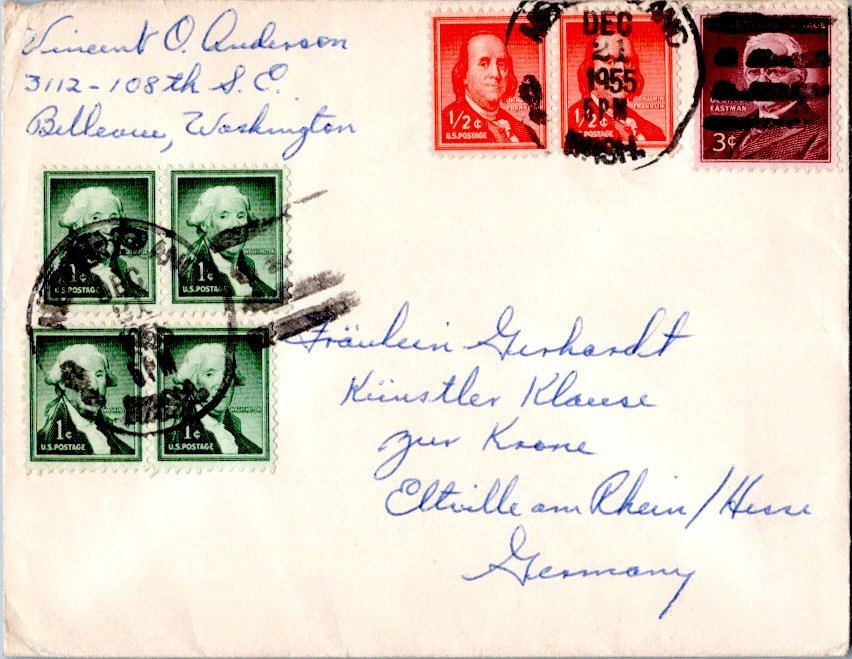 Vincent O. Anderson
3112-108th S.E.
Bellevue, Washington
DEC
21
1955
5 PM
WASH.
1/2¢
U.S. POSTAGE
BENJAMIN
FRANKLIN
1/2¢
U.S. POSTAGE
BENJAMIN
FRANKLIN
GEORGE
EASTMAN
3¢
1¢
U.S. POSTAGE
1¢
U.S. POSTAGE
WASHINGTON
DEC
1¢
U.S. POSTAGE
1¢
U.S. POSTAGE
WASHINGTON
Fräulein Gerhardt
Künstler Klause
zur Krone
Eltville am Rhein/Hesse
Germany